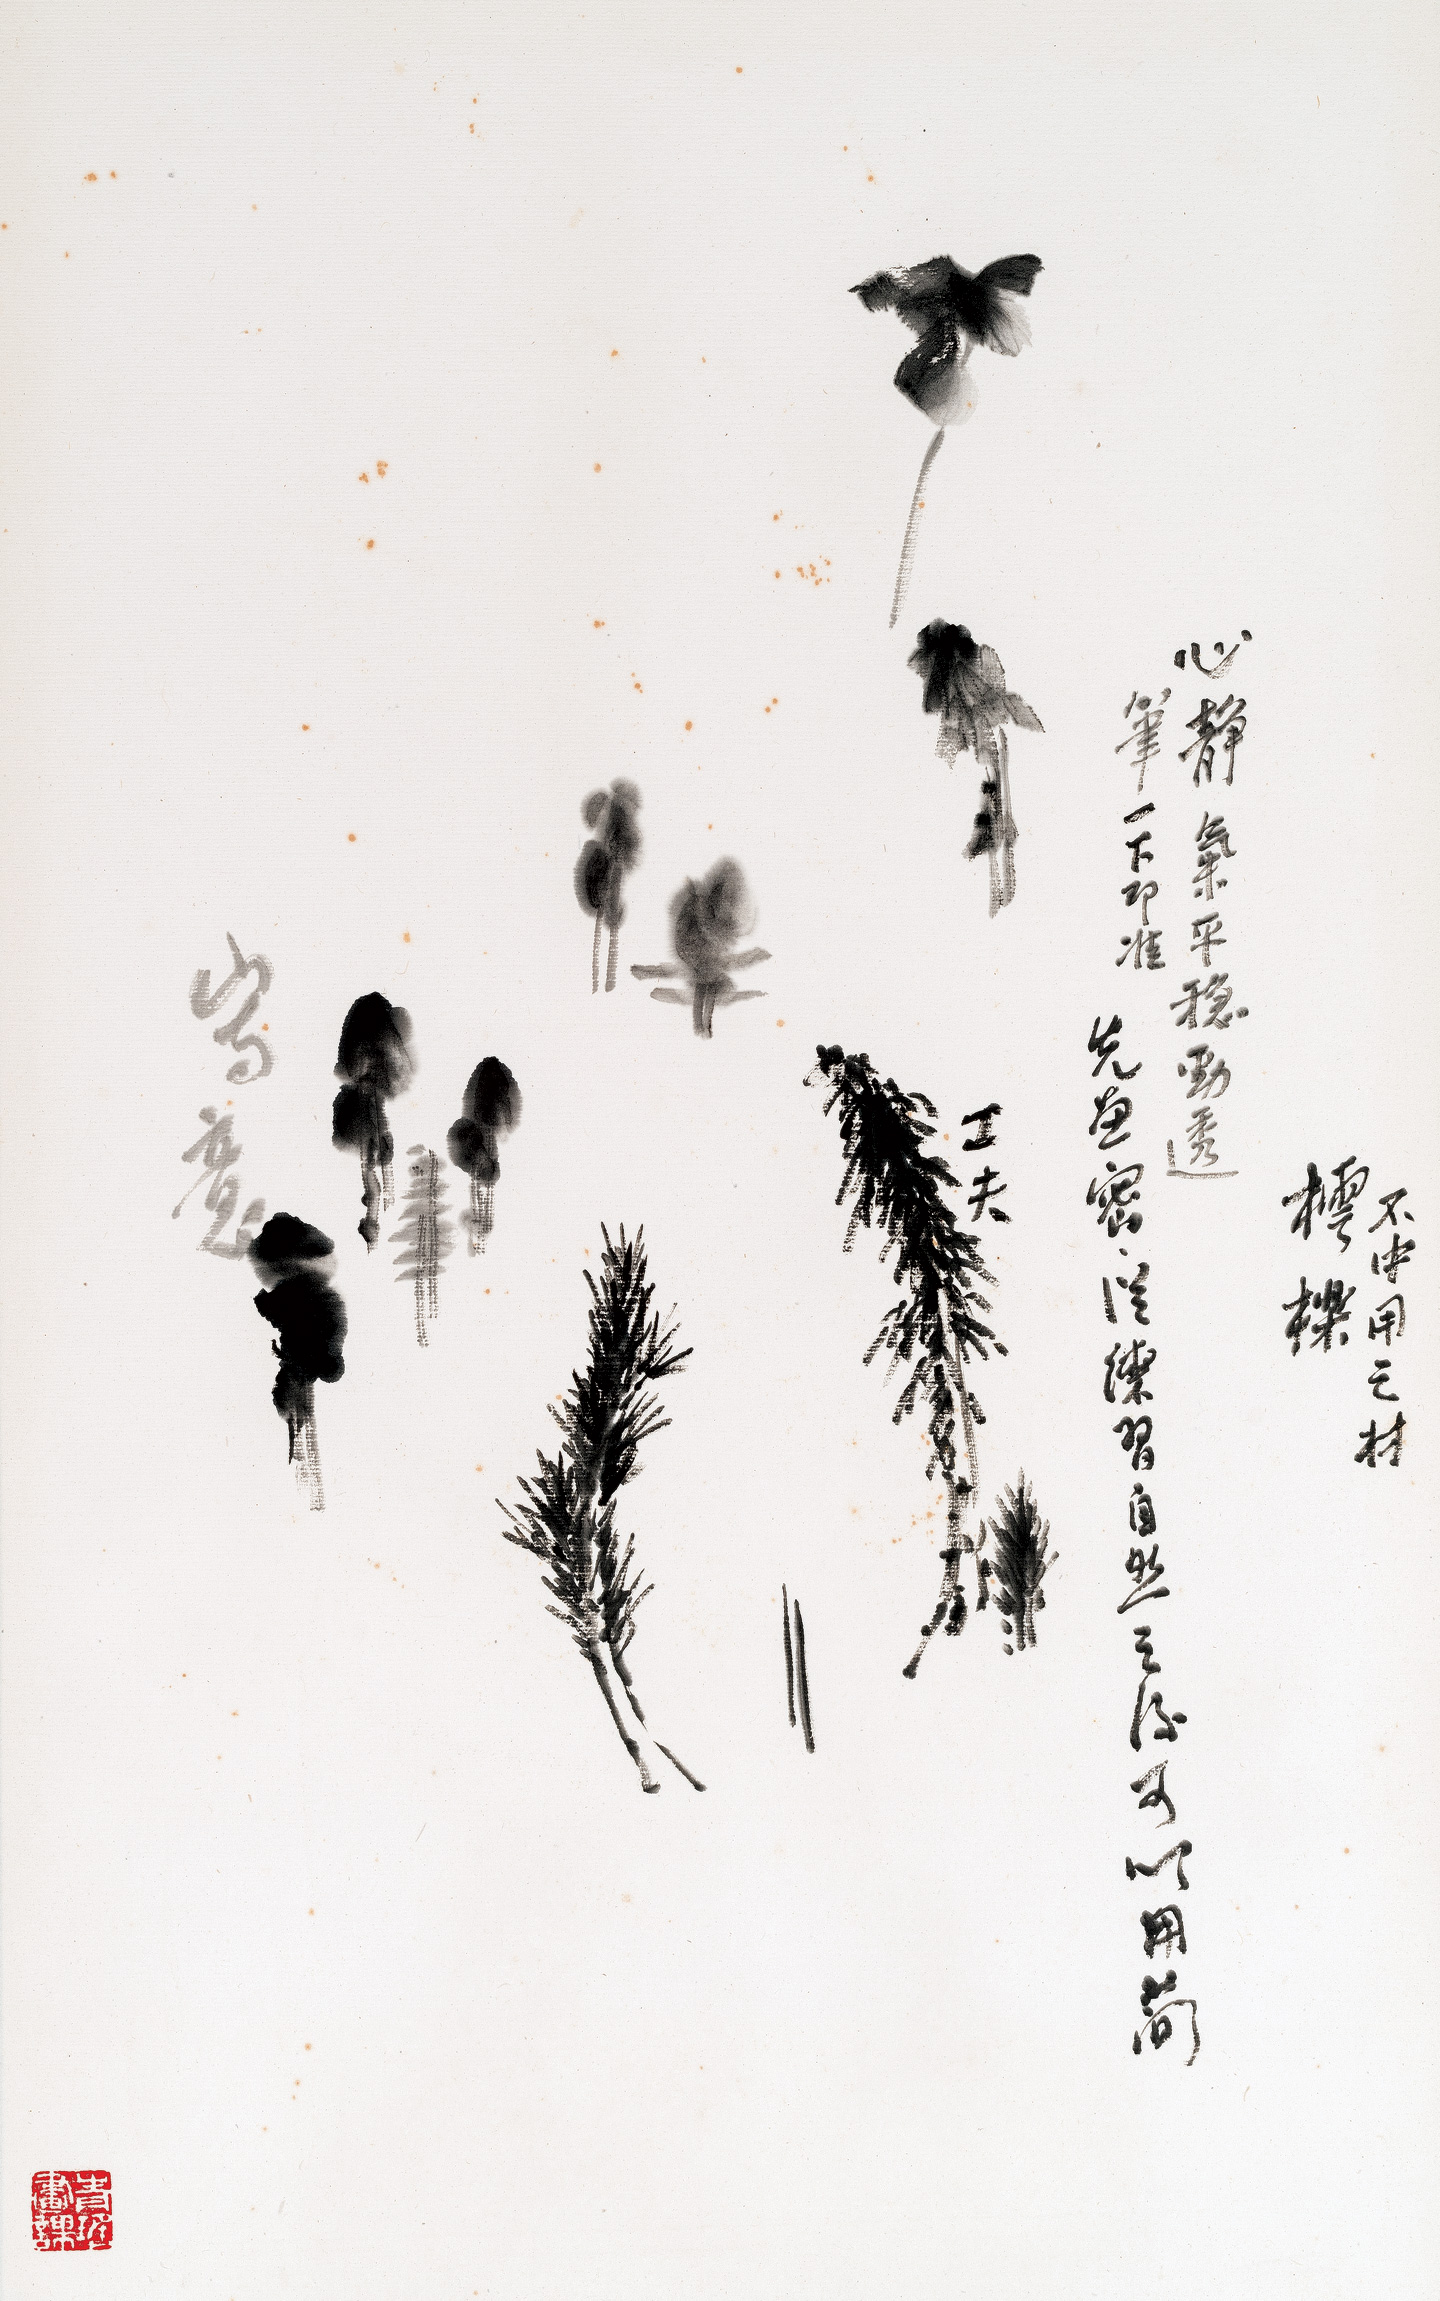 不中用之材
樗櫟
心靜氣平穩勁透
筆一下即準
先画密從練習自然之後可以用簡
工夫
寫意